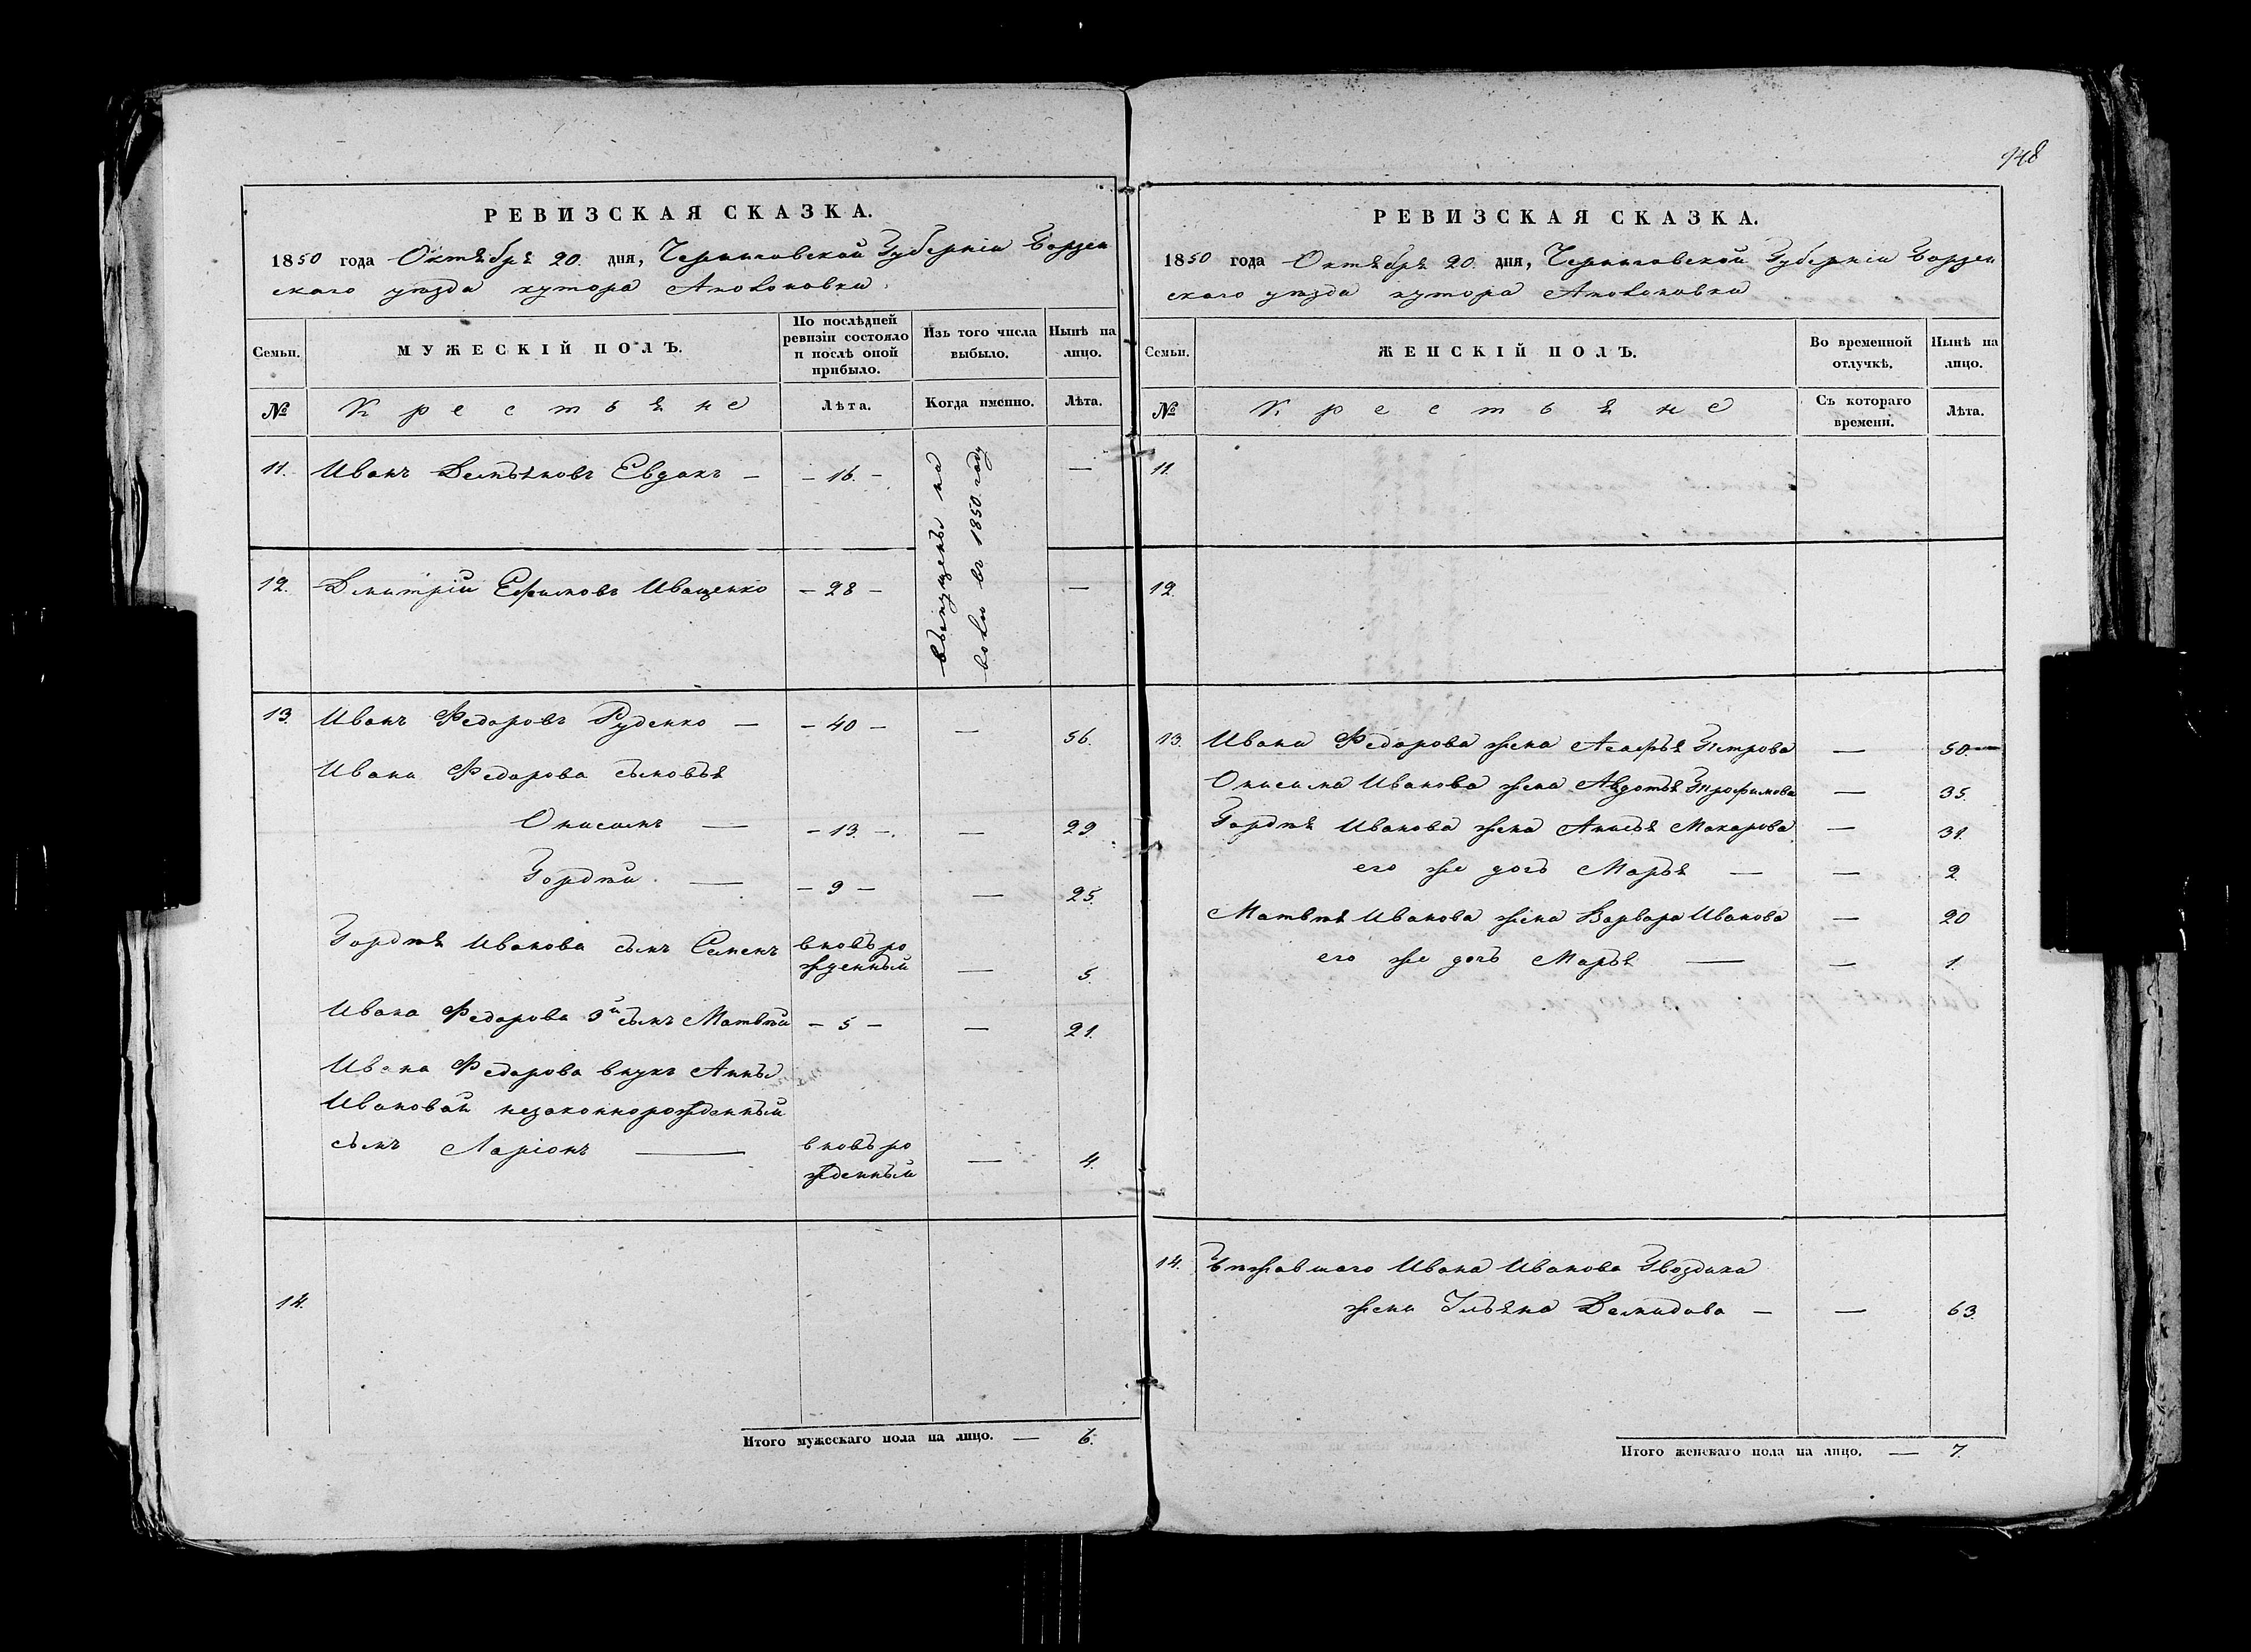 948
РЕВИЗСКАЯ СКАЗКА.
1850 года Октября 20. дня, Черниговской Губерніи Борзен
скаго уѣзда хутора
Семьи.
МУЖЕСКІЙ ПОЛЪ.
По послѣдней ревизіи состояло и послѣ оной прибыло.
Изъ того числа выбыло.
Нынѣ на лицо.
№
Крестьяне
Лѣта.
Когда именно.
Лѣта.
11. Иванъ Демьяновъ Евдакъ — — 16. — —
выпущены на
волю въ 1850 году
12. Дмитрій Ефимовъ Иващенко — 28 — —
13. Иванъ Федоровъ Руденко — — 40 — — 56.
Ивана Федорова сыновья
Онисимъ — — 13 — — 29.
Гордѣй — — 9 — — 25.
Гордѣя Ивановa сынъ Семенъ вновь ро
жденный — 5.
Ивана Федорова 3й сынъ Матвѣй — 5 — — 21.
Ивана Федорова внукъ Анны
Ивановой незаконнорожденный
сынъ Ларіонъ — вновь ро
жденный — 4.
14.
Итого мужескаго пола на лицо. — 6.
РЕВИЗСКАЯ СКАЗКА.
1850 года Октября 20. дня, Черниговской Губерніи Борзен
скаго уѣзда хутора
Семьи.
ЖЕНСКІЙ ПОЛЪ.
Во временной отлучкѣ.
Нынѣ на лицо.
№
Крестьяне
Съ котораго времени.
Лѣта.
11.
12.
13. Ивана Федорова жена Агафья Петрова — 50.
Онисима Иванова жена Авдотья Трофимова — 35.
Гордѣя Иванова жена Анисья Макарова — 31.
его же дочь Марья — — 2.
Матвѣя Иванова жена Варвара Иванова — 20
его же дочь Марья — — 1.
14. Бѣжавшаго Ивана Иванова Гвоздика
жена Ульяна Демидова — — 63.
Итого женскаго пола на лицо. — 7.